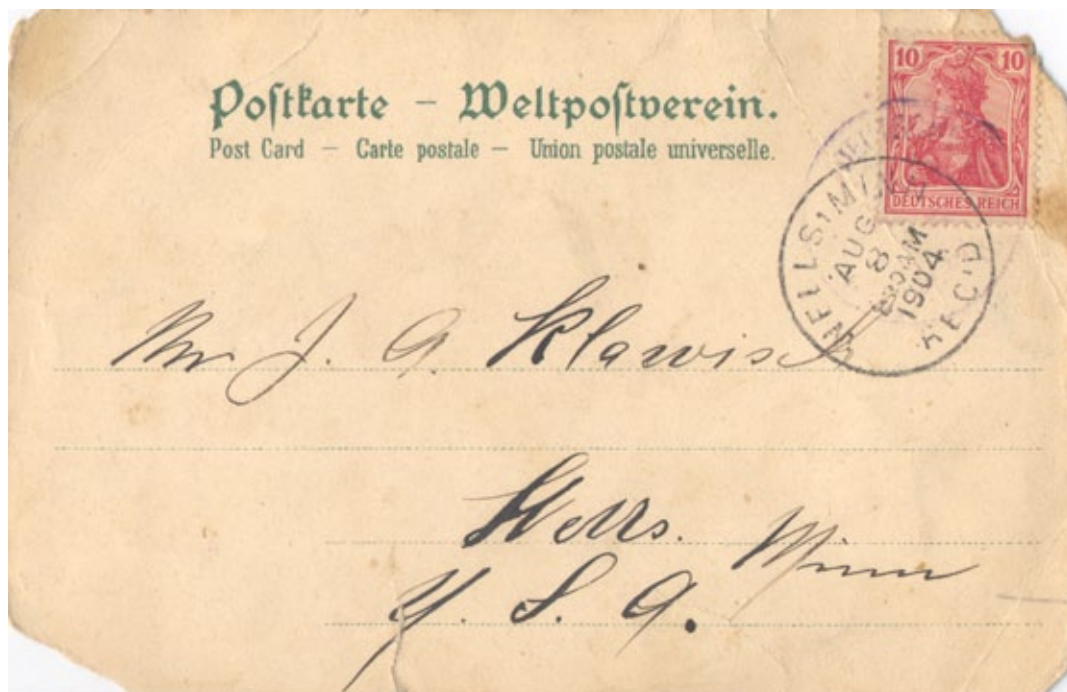 Postkarte – Weltpostverein.
Post Card – Carte postale – Union postale universelle.
10 10
DEUTSCHES REICH
WELLS, MINN
AUG
8
830AM
1904
REC'D
Mr J. A. Klawisch
Wells. Minn
U. S. A.